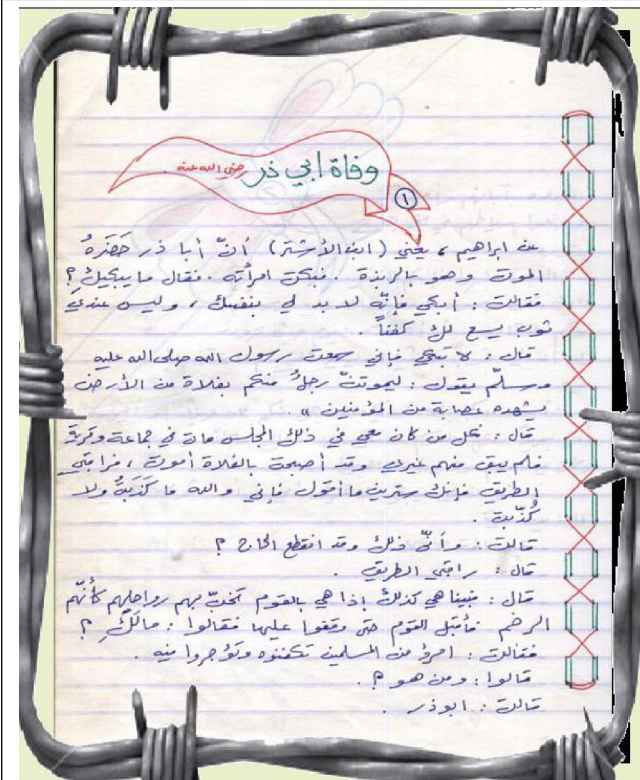 وفاة ابي ذر رضي الله عنه
١
عن ابراهيم ، يعني (ابن الأشتر) أنّ أبا ذر حَضَرَهُ
الموت وهو بالربذة . فبكت امرأته . فقال ما يبكيكِ ؟
فقالت : أبكي فإنّه لا بد لي بنفسك ، وليس عندي
ثوب يسع لك كفناً .
قال : لا تبكي فإني سمعت رسول الله صلى الله عليه
وسلّم يقول : ليموتنّ رجلٌ منكم بفلاة من الأرض
يشهده عصابة من المؤمنين » .
قال : فكل من كان معي في ذلك المجلس مات في جماعة وقرية
فلم يبق منهم غيري وقد أصبحت بالفلاة أموت ، فراقبي
الطريق فإنك سترين ما أقول فإني والله ما كَذَبتُ ولا
كُذّبت .
قالت : وأنّى ذلك وقد انقطع الحاج ؟
قال : راقبي الطريق .
قال : فبينا هي كذلك إذا هي بالقوم تخبّ بهم رواحلهم كأنّهم
الرخم فأقبل القوم حتى وقفوا عليها فقالوا : مالَكِ ؟
فقالت : امرؤ من المسلمين تكفنوه وتؤجروا فيه .
قالوا : ومن هو ؟ .
قالت : ابوذر .